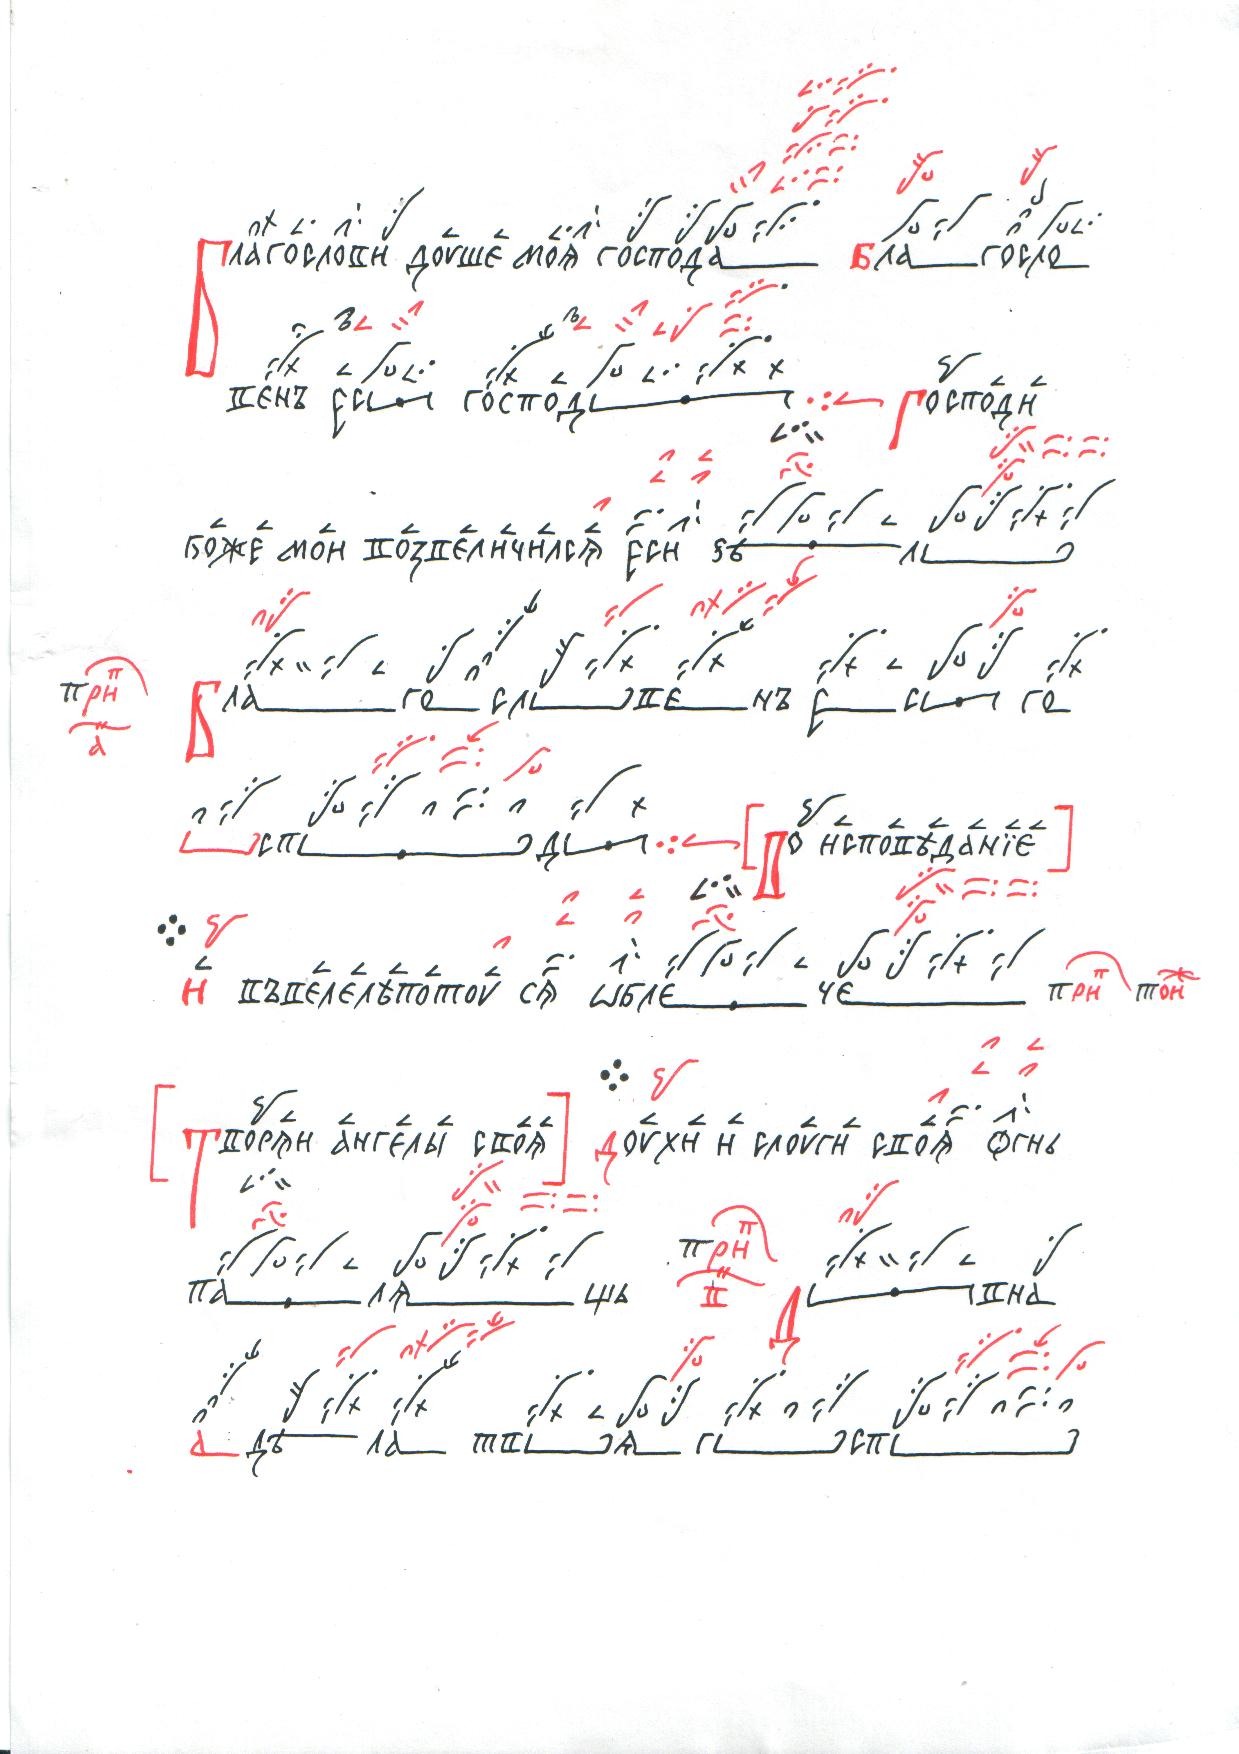 Благослови доуше моѧ господа Благосло
венъ еси господи Господи
боже мои возвеличилсѧ еси ѕѣли
при п Благословенъ еси го
а
споди [Во исповѣданїе]
И въвелелѣпотоу сѧ ѡблече при п тои ж
[Творѧи ангелы своѧ] доухи и слоуги своѧ огнь
палѧщь при п Дивна
в
а дѣла твоѧ госпо